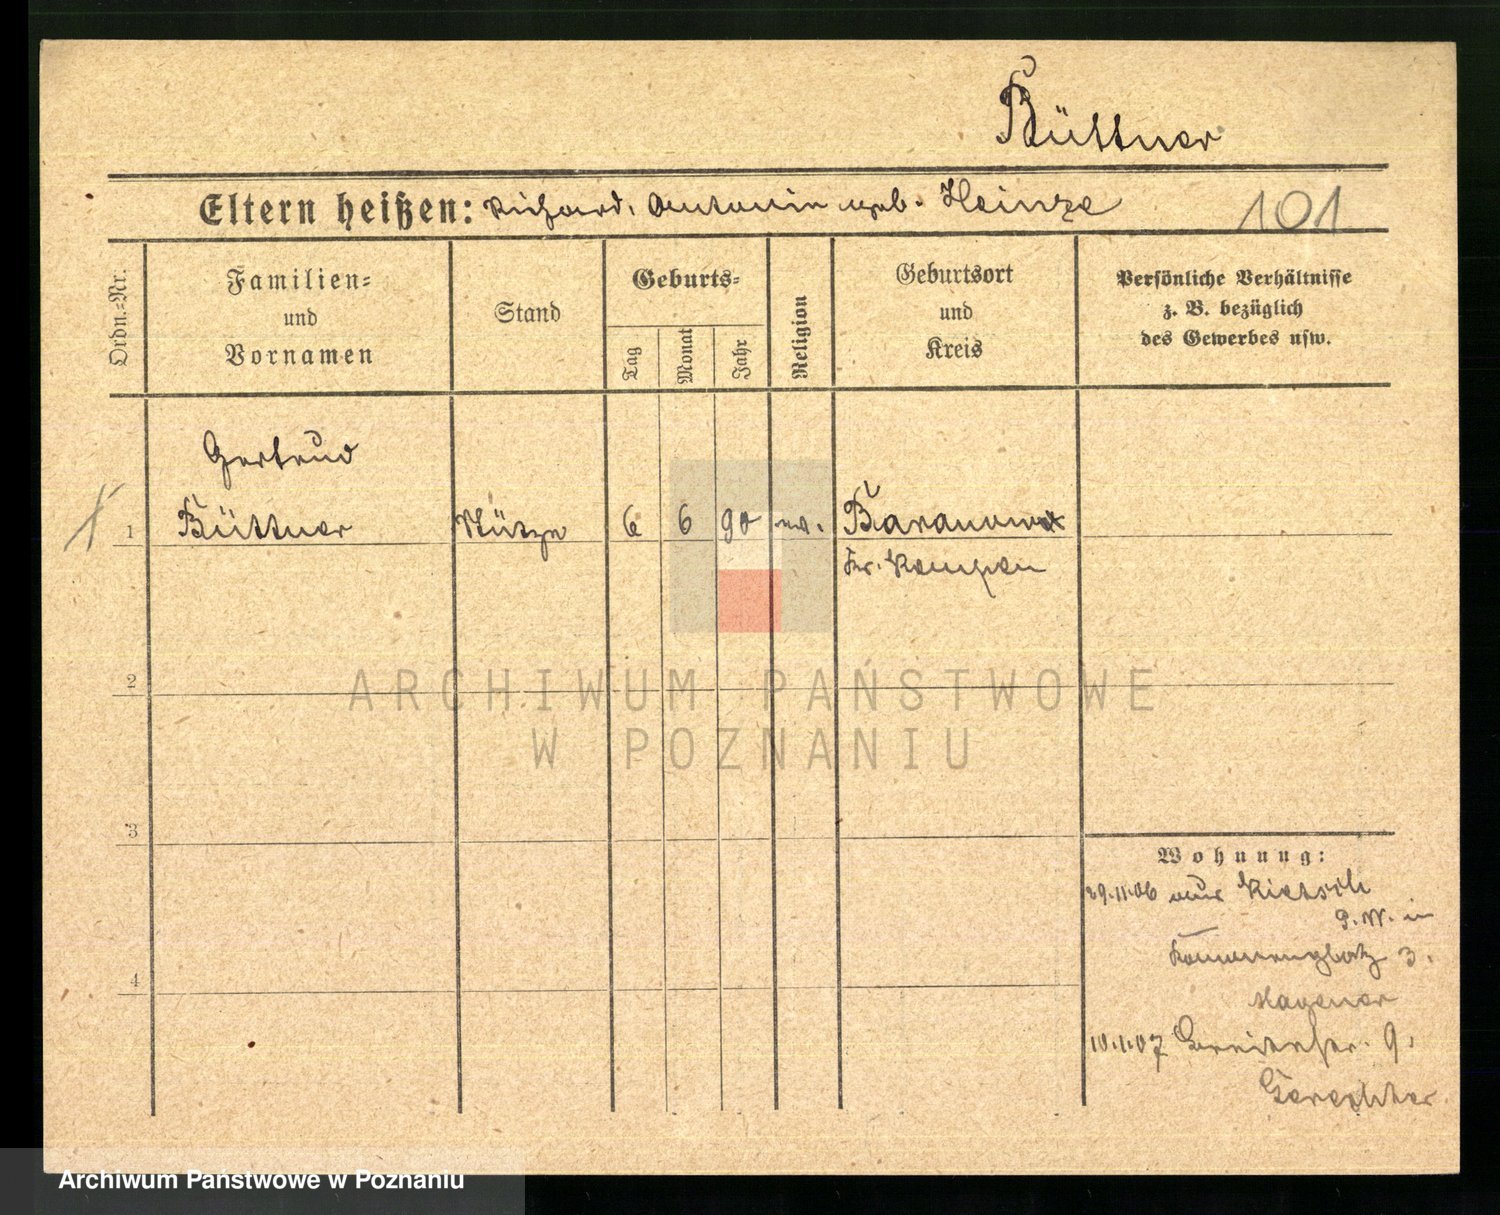 Büttner
Eltern heißen: Richard, Antonie geb. Heinze
101
Ordn.-Nr.
Familien-
und
Vornamen
Stand
Geburts-
Tag
Monat
Jahr
Religion
Geburtsort
und
Kreis
Persönliche Verhältnisse
z. B. bezüglich
des Gewerbes usw.
Gertrud
1 Büttner Stütze 6 6 90 ev. Baranow
Kr. Kempen
2
ARCHIWUM PAŃSTWOWE
W POZNANIU
3
Wohnung:
29.11.06 aus
in
3.
4
10.1.07 9,
Archiwum Państwowe w Poznaniu